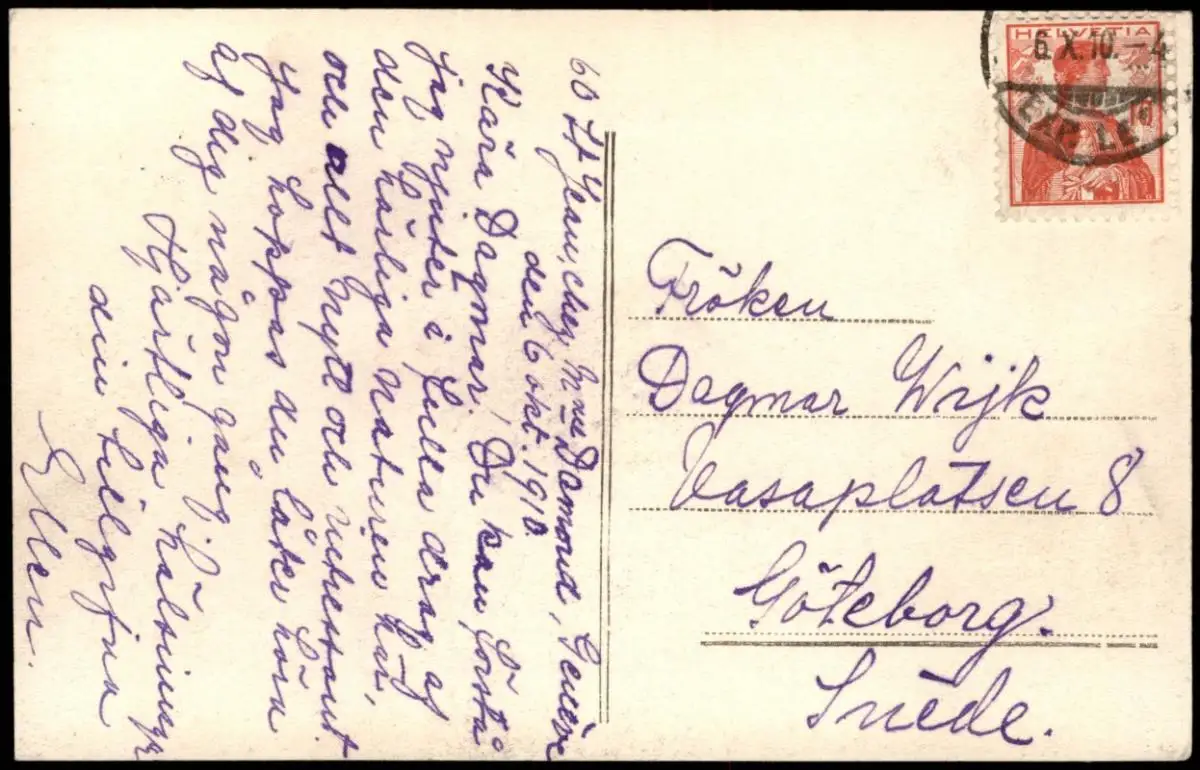 60 St Jean, chez Mme Damond, Genève
den 6 okt. 1910.
Kära Dagmar, Du kan förstå
jag njuter i fulla drag af
den härliga naturen här,
och allt nytt och intressant.
Jag hoppas du låter höra
af dig någon gång.
Hjärtliga hälsningar
din tillgifna
Ellen.
HELVETIA
6.X.10.-4
10
EXP. LE
Fröken
Dagmar Wijk
Vasaplatsen 8
Göteborg.
Suède.